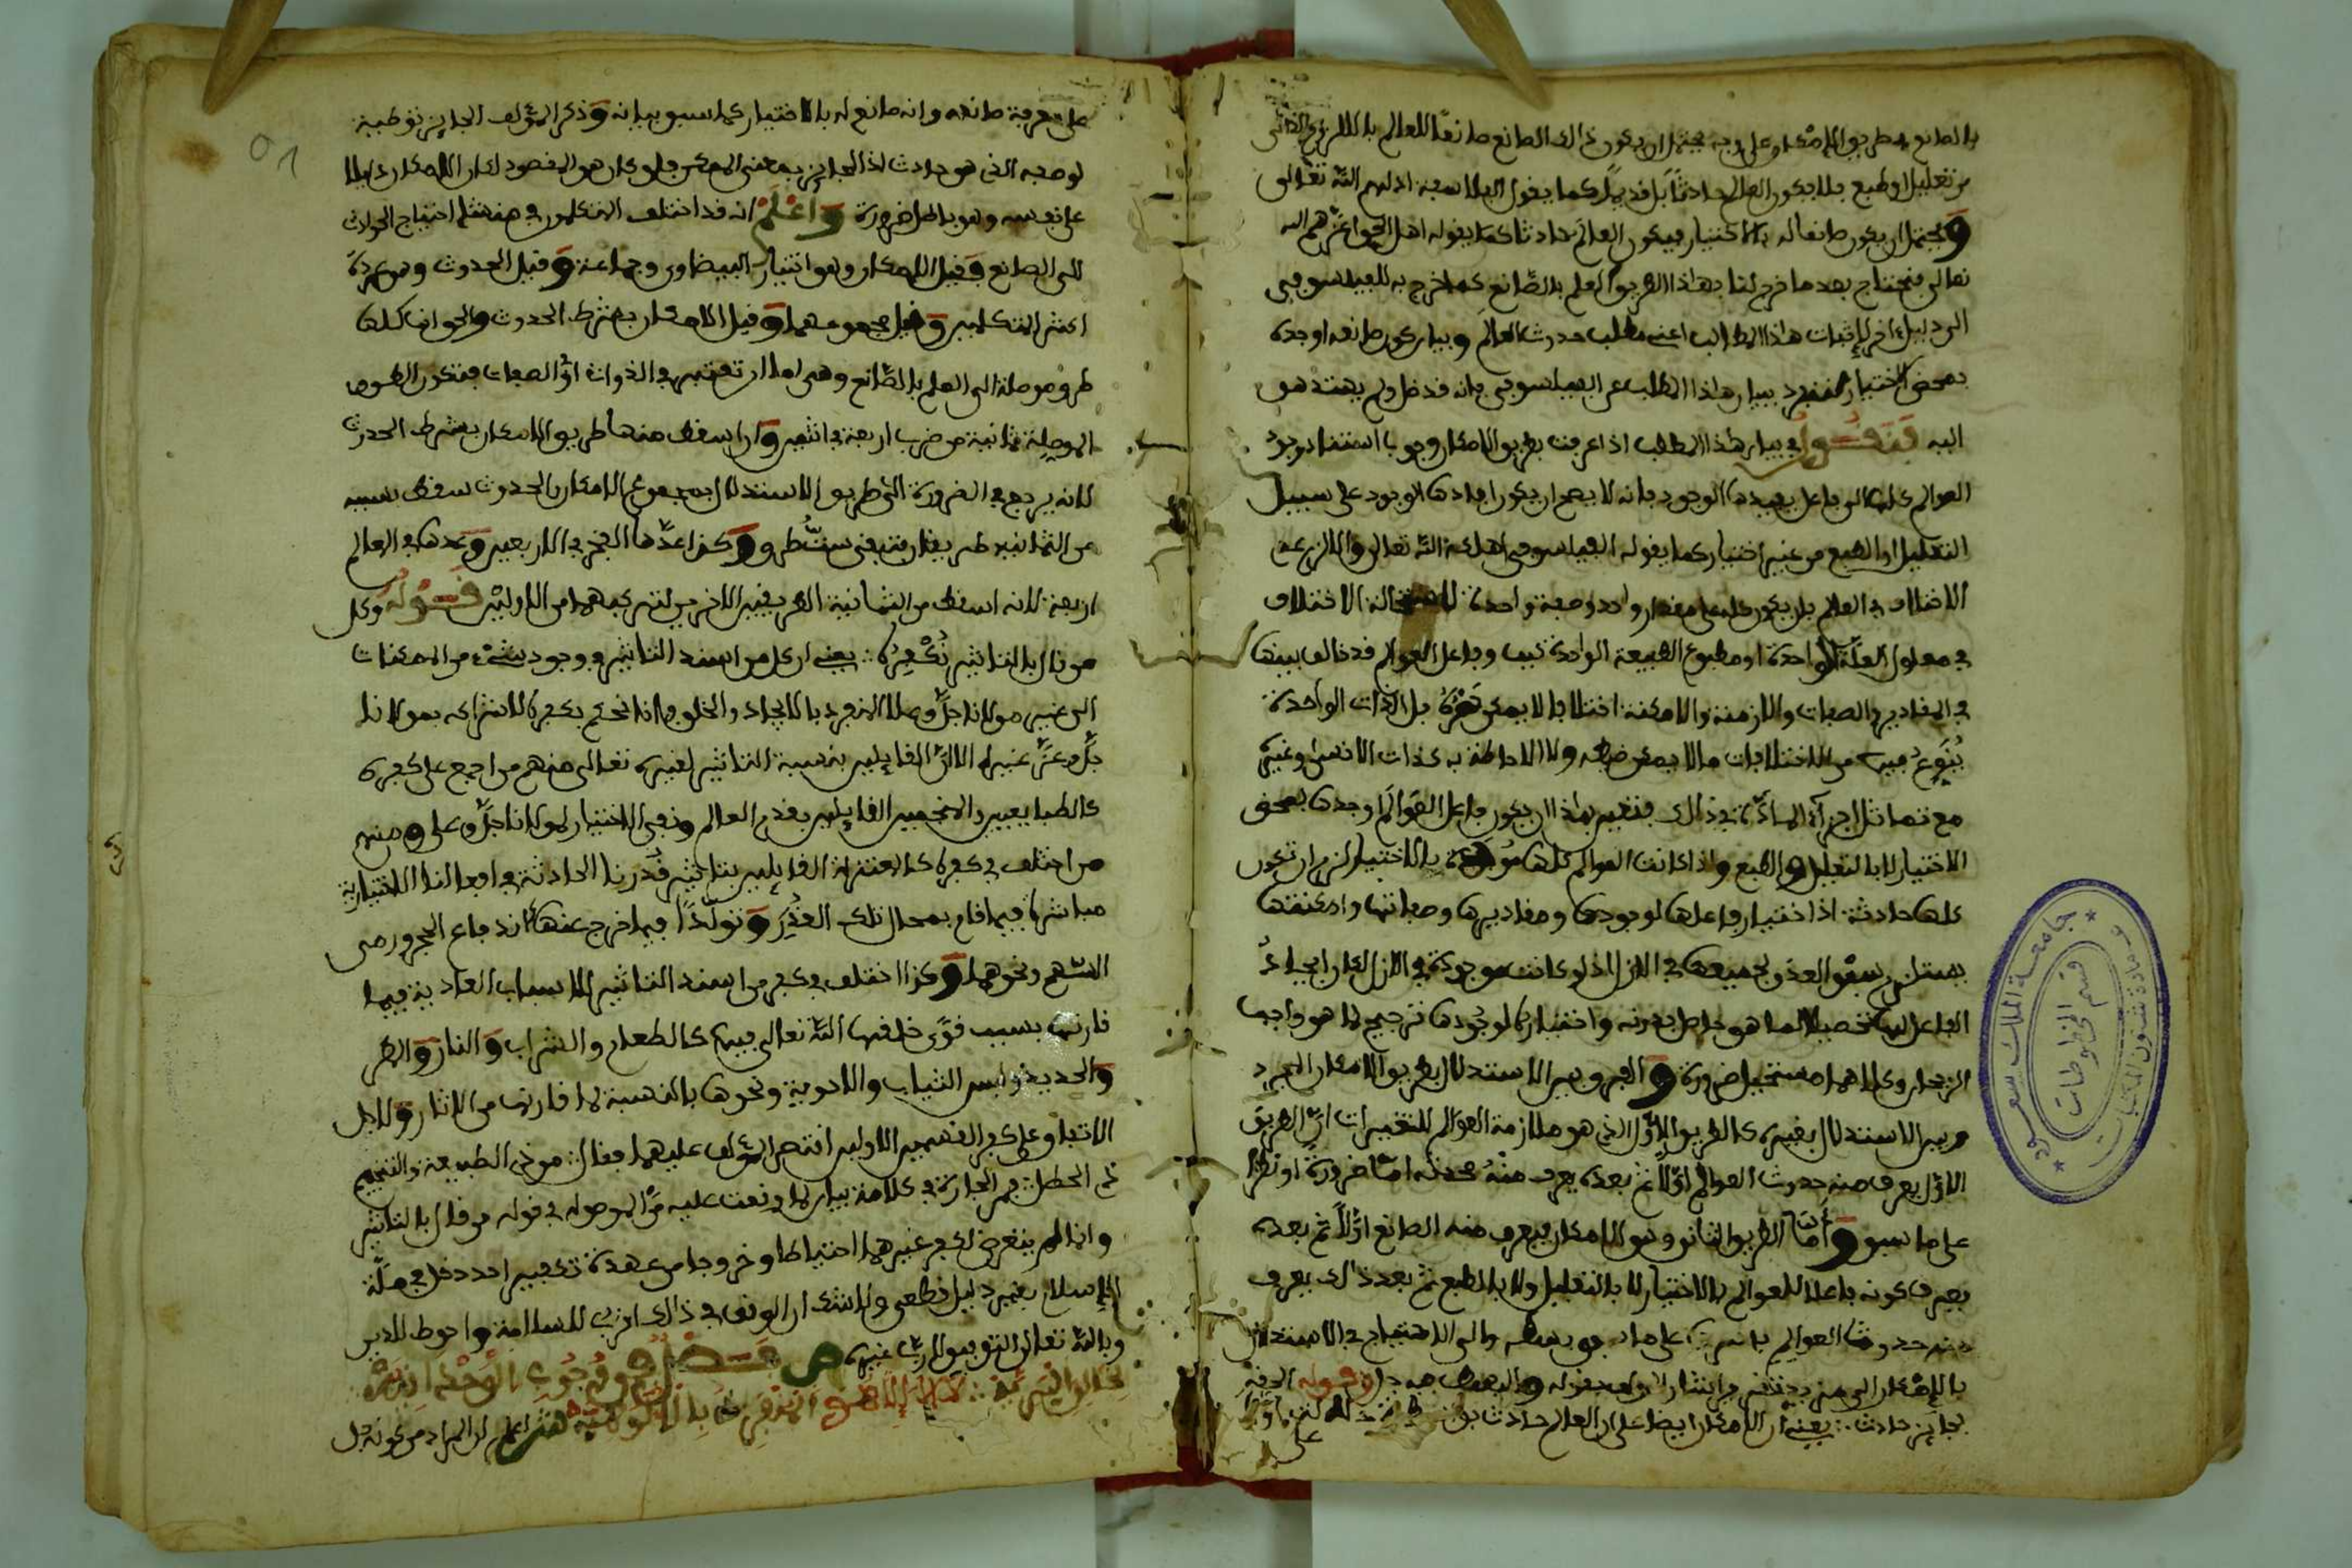 بالصانع بطريق الإمكان وعلى وجه يحتمل ان يكون ذالك الصانع صانعًا للعالم باللزوم الذاتي
من تعليل او طبع فلا يكون العالم حادثًا بل قديمًا كما يقول الفلاسفة اذلهم الله تعالى
ويحتمل ان يكون صانعا له بالاختيار فيكون العالم حادثا كما يقوله اهل الحق اعزهم الله
تعالى فنحتاج بعد ما خرج لنا بهاذا الطريق العلم بالصّانع كما خرج به للفيلسوفي
الى دليل اخر لإثبات هاذا المطلب اعني مطلب حدوث العالم وبيان كون صانعه اوجده
بمحض الاختيار لننفرد ببيان هاذا المطلب عن الفيلسوفي فانه قد ضل ولم يهتد هو
اليه فنقول في بيان هذا المطلب اذا عرفت بطريق الامكان وجوب استناد وجود
العوالم كلها الى فاعل يفيدها الوجود فانه لا يصح ان يكون افادها الوجود على سبيل
التعليل او الطبع من غير اختيار كما يقوله الفيلسوفي اهلكه الله تعالى والا لزم عدم
الاختلاف في العالم بل يكون كله على مقدار واحد وصفة واحدة لاستحالة الاختلاف
في معلول العلّة الواحدة او مطبوع الطبيعة الواحدة كيف وفاعل العوالم قد خالف بينها
في المقادير والصفات والازمنة والامكنة اختلافا لا يمكن حصره بل الذات الواحدة
يُنَوِّعُ فيها من الاختلافات ما لا يمكن ضبطه ولا الاحاطة به كذات الانسان وغيره
مع تماثل اجزاء المادّة في ذالك فتعين بهاذا ان يكون فاعل العوالم اوجدها بمحض
الاختيار لا بالتعليل والطبع واذا كانت العوالم كلها موجدة بالاختيار لزم ان تكون
كلها حادثة اذ اختيار فاعلها لوجودها ومقاديرها وصفاتها وامكنتها
يستلزم سبق العدم لجميعها في الازل اذ لو كانت موجودة في الازل لكان ايجاد
الفاعل لها تحصيلا لما هو حاصل بقدرته واختياره لوجودها ترجيح لما هو واجب
الرجحان وكلاهما مستحيل ضرورة والفرق بين الاستدلال بطريق الامكان المجرد
وبين الاستدلال بغيره كالطريق الاوّل الذي هو ملازمة العوالم للتغييرات انّ الطريق
الاوّل يعرف منه حدوث العوالم اوّلًا ثم بعده يعرف منه محدثه امّا ضرورة او نظرا
على ما سبق وأمّا الطريق الثاني وهو الامكان فيعرف منه الصانع اوّلًا ثم بعده
يعرف كونه فاعلا للعوالم بالاختيار لا بالتعليل ولا بالطبع ثم بعد ذالك يعرف
منه حدوث العوالم باسرها على ما سبق بسطه والى الاحتياج في الاستدلال
بالإمكان الى مزيد اشار المؤلف بقوله وقوله
بجايز حادث يعني أن الامكان ايضا على ان العالم حادث
على

على معرفة صانعه وانه صانع له بالاختيار كما سبق بيانه وذكر المؤلف الجايز توطية
لوصفه الذي هو حادث اذ الجايز بمعنى الممكن فلو كان هو المقصود لكان الامكان دليلا
على نفسه وهو باطل ضرورة واعلم انه قد اختلف المتكلمون في منشا احتياج الحوادث
الى الصانع فقيل الامكان وهو اختيار البيضاوي وجماعة وقيل الحدوث وهو عمدة
اكثر المتكلمين وقيل مجموعهما وقيل الامكان بشرط الحدوث والحق انها كلها
طرق موصلة الى العلم بالصّانع وهي اما ان تعتبر في الذوات او الصفات فتكون الطرق
الموصلة ثمانية من ضرب اربعة في اثنين وان اسقط منها طريق الامكان بشرط الحدوث
لانه يرجع في الضرورة الى طريق الاستدلال بمجموع الامكان والحدوث سقط بسببه
من الثمانية طريقان فتبقى ستّ طرق وكذا عدّها الفخر في الاربعين وعدها في المعالم
اربعة لانه اسقط من الثمانية الطريقين الاخرين لتركبهما من الاوليْن قوله وكل
من قال بالتاثير نُكْفِرُهُ يعني ان كل من اسند التاثير في وجود شيْء من الممكنات
الى غير مولانا جلّ وعلا المنفرد بالايجاد والخلق فانا نحكم بكفره لاشراكه بمولانا
جلّ وعزّ غيره الا انّ القايلين بنسبة التاثير لغيره تعالى منهم من اجمع على كفره
كالطبايعيين والمنجمين القايلين بقدم العالم ونفي الاختيار لمولانا جلّ وعلى ومنهم
من اختلف في كفره كالمعتزلة القايلين بتاثير قُدَرنا الحادثة في افعالنا الاختيارية
مباشرة فيما قام بمحال تلك القُدَر وتولّدًا فيما خرج عنها كاندفاع الحجر ورمي
السّهم ونحوهما وكذا اختلف في كفر من اسند التاثير للاسباب العادية فيما
قارنها بسبب قوًى خلقها الله تعالى فيها كالطعام والشراب والنار والمطر
والحديد ولبس الثياب والادوية ونحوها بالنسبة لما قارنها من الاثار ولاجل
الاتفاق على كفر القسمين الاولين اقتصر المؤلف عليهما فقال من ذي الطبيعة والتنجيم
ثم الحطل فمن الجارة في كلامه بيان لما وقعت عليه من الموصولة في قوله من قال بالتاثير
وانما لم يتعرض لكفر غيرهما احتياطا وخروجا من عهدة تكفير احد دخل في ملّة
الإسلام بغير دليل قطعي ولا شك ان الوقف في ذالك اقرب للسلامة واحوط للدين
وبالله تعالى التوفيق لا ربّ غيره ص فصل في وجوب الوحدانية
لخالق البرية المنفرد بالالوهية ش اعلم ان المراد من كونه جل

جامعة الملك سعود
قسم المخطوطات
عمادة شؤون المكتبات